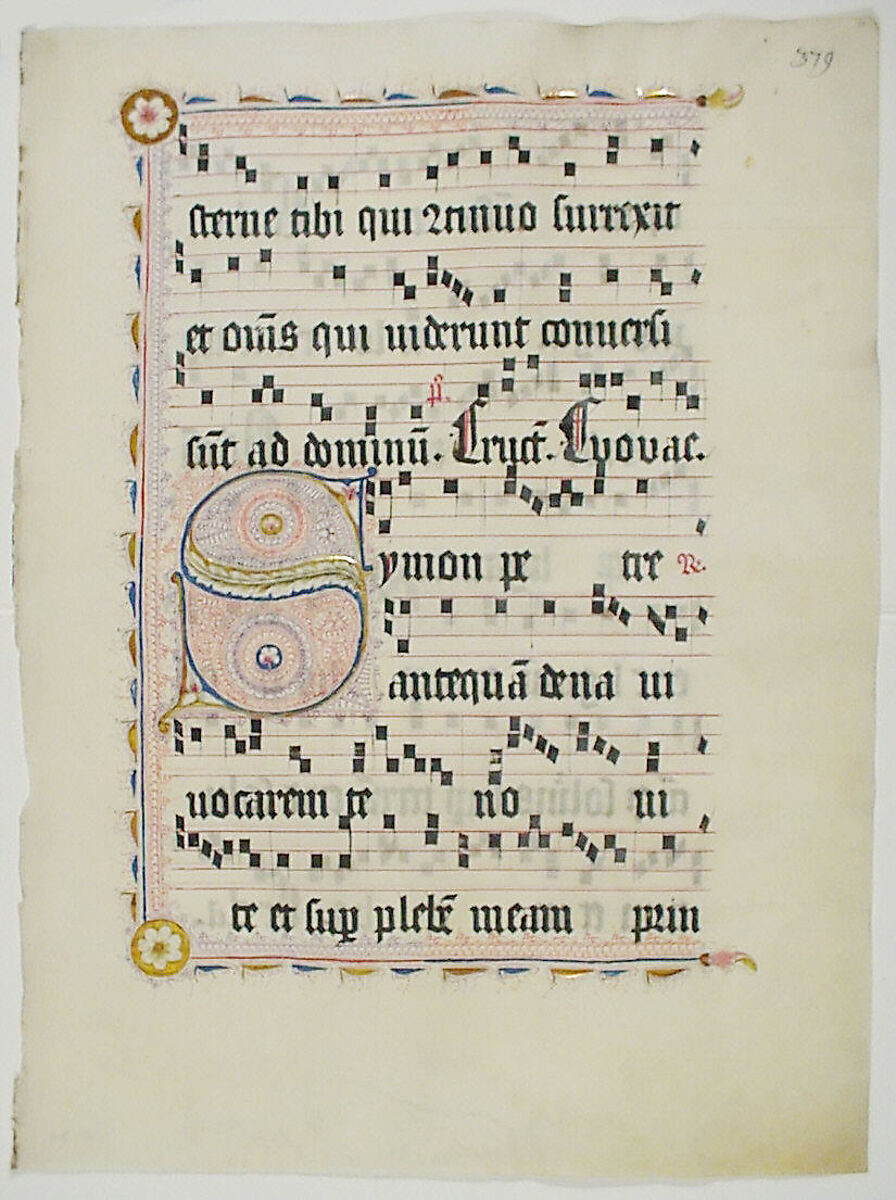 379
sterne tibi qui ꝯtinuo surrexit
et om̄s qui uiderunt conuersi
sūt ad dominū. Euouae.
Symon pe tre
antequā de na ui
uocarem te no ui
te et suꝑ plebē meam prin